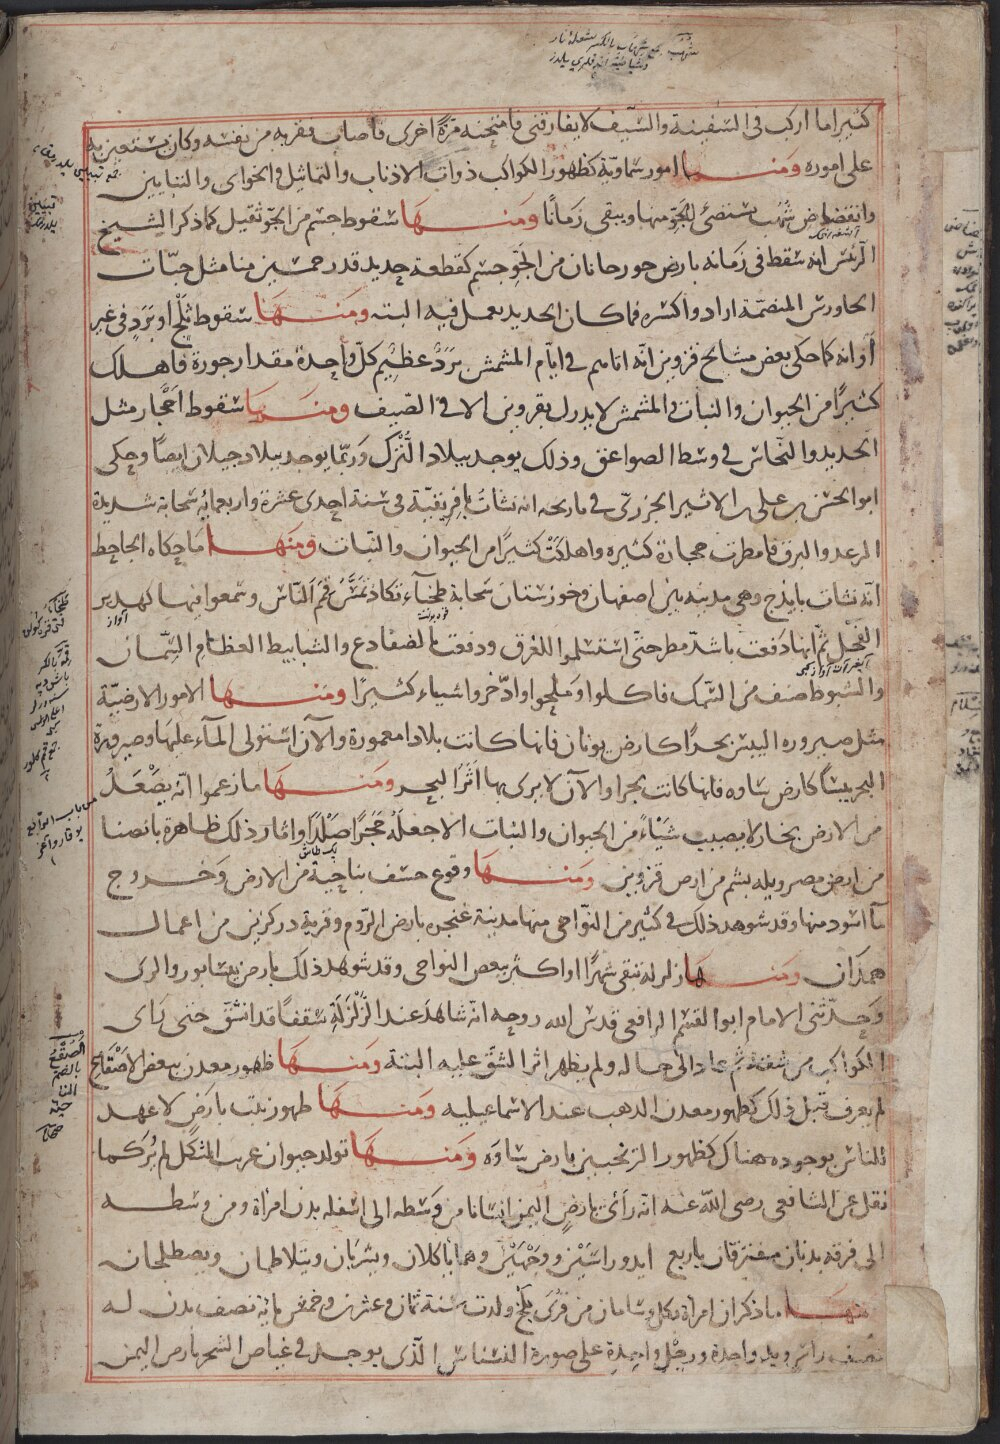 شهب جمع شهاب بالكسر شعلهٔ نار
كثيرا ما اركب في السفينة والسيف لا يفارقني فامتحنه مرة اخرى فاصاب فقربه من نفسه وكان يستعين به
على اموره ومنها امور سماوية كظهور الكواكب ذوات الاذناب والتماثيل والخوابي والتنانين
وانقضاض شهب يستضئ الجو منها ويبقى زمانا ومنها سقوط جسم من الجو ثقيل كما ذكر الشيخ
الرئيس انه سقط في زمانه بارض جورجانان من الجو جسم كقطعة حديد قدر خمسين منا مثل حبات
الجاورش المنضمة ارادوا كسره فما كان الحديد يعمل فيه البتة ومنها سقوط ثلج او برد في غير
أوانه كما حكى بعض مشايخ قزوين انه اتاهم في ايام المشمش برد عظيم كل واحدة مقدار جوزة فاهلك
كثيرا من الحيوان والنبات والمشمش لا يدرك بقزوين الا في الصيف ومنها سقوط احجار مثل
الحديد والنحاس في وسط الصواعق وذلك يوجد ببلاد الترك وربما يوجد ببلاد جيلان ايضا وحكى
ابو الحسن بن علي بن الاثير الجزري في تاريخه انه نشات بافريقية في سنة احدى عشرة واربعمائة سحابة شديدة
الرعد والبرق فامطرت حجارة كثيرة واهلكت كثيرا من الحيوان والنبات ومنها ما حكاه الجاحظ
انه نشات بايذج وهي مدينة بين اصفهان وخوزستان سحابة طخياء تكاد تمس قمم الناس وسمعوا فيها كهدير
الفحل ثم انها دفعت باشد مطر حتى استسلموا للغرق ودفعت بالضفادع والشبابيط العظام السمان
والشبوط صنف من السمك فاكلوا وملحوا وادخروا شياء كثيرا ومنها الامور الارضية
مثل صيرورة اليبس بحرا كارض يونان فانها كانت بلادا معمورة والآن استولى الماء عليها وصيرورة
البحر يبسا كارض ساوه فانها كانت بحرا والآن لا يرى بها اثر البحر ومنها ما زعموا انه يصعد
من الارض بخار لا يصيب شياء من الحيوان والنبات الا جعله حجرا صلدا واثار ذلك ظاهرة بانصنا
من ارض مصر ويله بشم من ارض قزوين ومنها وقوع خسف بناحية من الارض وخروج
ماء اسود منها وقد شوهد ذلك في كثير من النواحي منها مدينة غنجره بارض الروم وقرية دركزين من اعمال
همذان ومنها زلزلة تبقى شهرا او اكثر ببعض النواحي وقد شوهد ذلك بارض نيسابور والرى
وحدثنى الامام ابو القسم الرافعي قدس الله روحه انه شاهد عند الزلزلة سقفا قد انشق حتى رأى
الكواكب من شقه ثم عاد الى حاله ولم يظهر اثر الشق عليه البتة ومنها ظهور معدن ببعض الاصقاع
لم يعرف قبل ذلك كظهور معدن الذهب عند الاسماعيلية ومنها ظهور نبت بارض لا عهد
للناس بوجوده هناك كظهور الترنجبين بارض ساوه ومنها تولد حيوان غريب الشكل لم ير كما
نقل عن الشافعي رضي الله عنه انه رأى بارض اليمن انسانا من وسطه الى اسفله بدن امرأة ومن وسطه
الى فرقه بدنان مفترقان باربع ايد وراسين ووجهين وهما ياكلان ويشربان ويتلاطمان ويصطلحان
ومنها ما ذكر ان امرأة بكلوسامان من قرى بلخ ولدت سنة ثمان وعشرين وخمس مائة نصف بدن له
نصف راس ويد واحدة ورجل واحدة على صورة النسناس الذي يوجد في غياض الشحر بارض اليمن